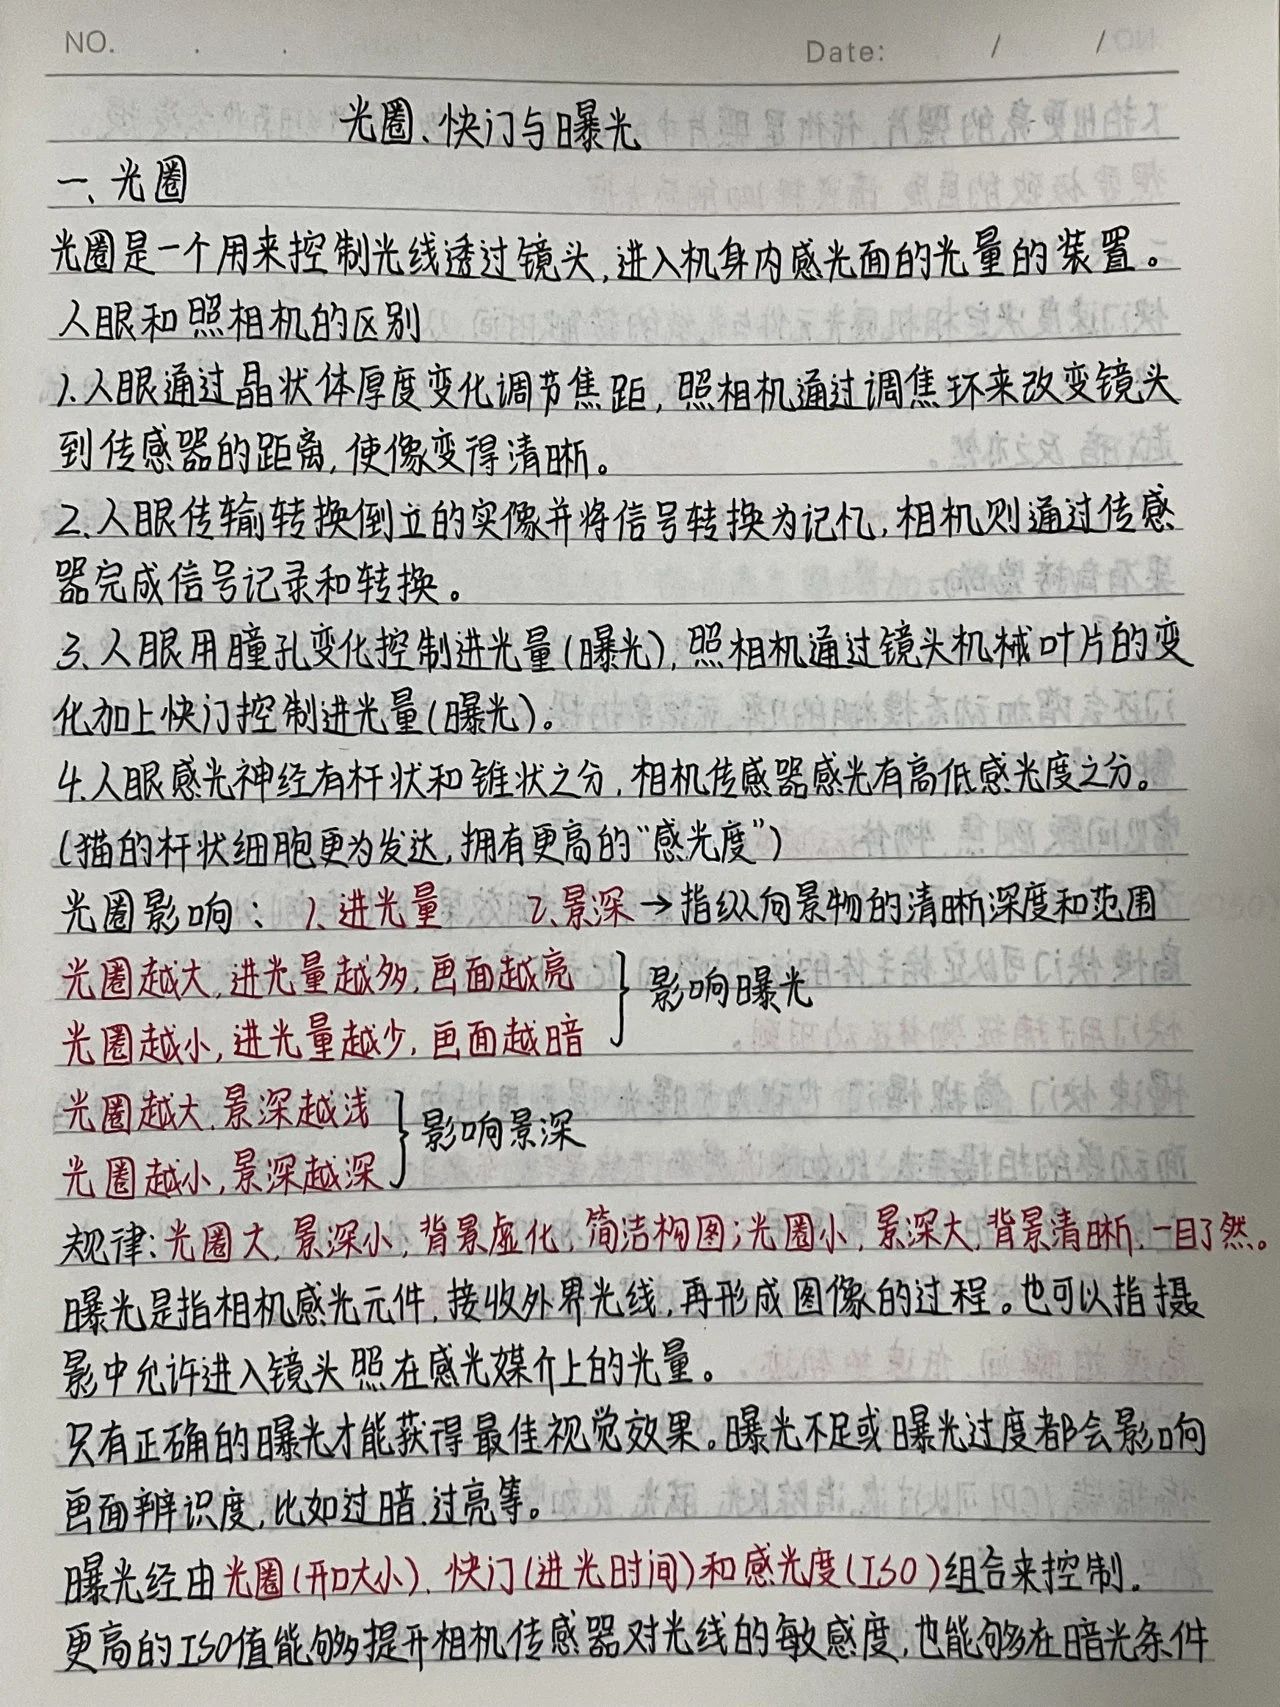 NO.
Date: / /
光圈、快门与曝光
一、光圈
光圈是一个用来控制光线透过镜头,进入机身内感光面的光量的装置。
人眼和照相机的区别
1.人眼通过晶状体厚度变化调节焦距,照相机通过调焦环来改变镜头
到传感器的距离,使像变得清晰。
2.人眼传输转换倒立的实像并将信号转换为记忆,相机则通过传感
器完成信号记录和转换。
3.人眼用瞳孔变化控制进光量(曝光),照相机通过镜头机械叶片的变
化加上快门控制进光量(曝光)。
4.人眼感光神经有杆状和锥状之分,相机传感器感光有高低感光度之分。
(猫的杆状细胞更为发达,拥有更高的“感光度”)
光圈影响: 1.进光量 2.景深→指纵向景物的清晰深度和范围
光圈越大,进光量越多,画面越亮
光圈越小,进光量越少,画面越暗
} 影响曝光
光圈越大,景深越浅
光圈越小,景深越深
} 影响景深
规律:光圈大,景深小,背景虚化,简洁构图;光圈小,景深大,背景清晰,一目了然。
曝光是指相机感光元件,接收外界光线,再形成图像的过程。也可以指摄
影中允许进入镜头照在感光媒介上的光量。
只有正确的曝光才能获得最佳视觉效果。曝光不足或曝光过度都会影响
画面辨识度,比如过暗、过亮等。
曝光经由光圈(开口大小)、快门(进光时间)和感光度(ISO)组合来控制。
更高的ISO值能够提升相机传感器对光线的敏感度,也能够在暗光条件